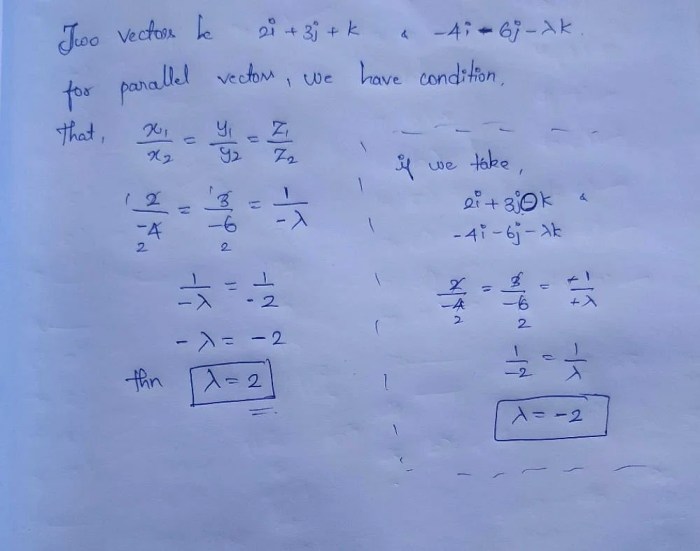 Two vectors be 2i + 3j + k & -4i - 6j - λk.
for parallel vectors, we have condition,
that, x₁/x₂ = y₁/y₂ = z₁/z₂
2/-4 = 3/-6 = 1/-λ
1 2 1 2
1/-λ = 1/-2
-λ = -2
thn λ = 2
if we take,
2i + 3j - k &
-4i - 6j - λk
2/-4 = 3/-6 = -1/+λ
2 2
1/-2 = 1/λ
λ = -2